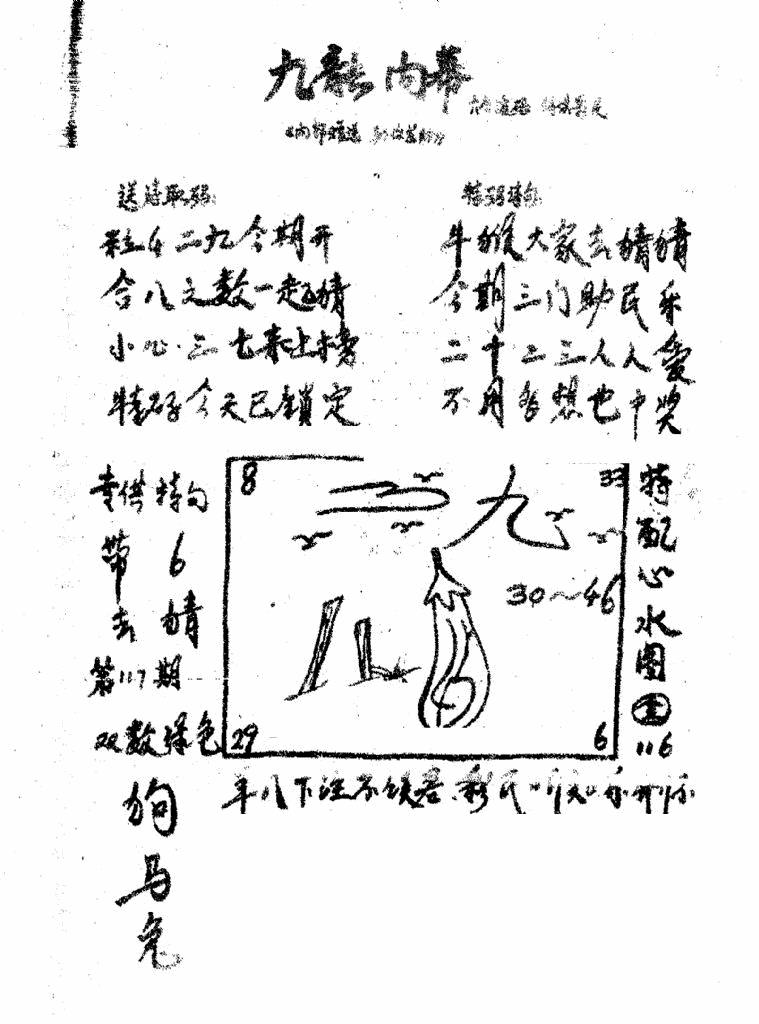 九龙内幕
送诗取码:
特码诗句:
粒4二九今期开
合八之数一起猜
小心三七来上榜
特码今天已锁定
牛猴大家去猜猜
今期三门助民乐
二十二三人人爱
不用多想也中奖
专供特句
带6
去猜
第117期
双数绿色
狗
马
兔
8
33
九
30~46
29
6
特配心水图
116